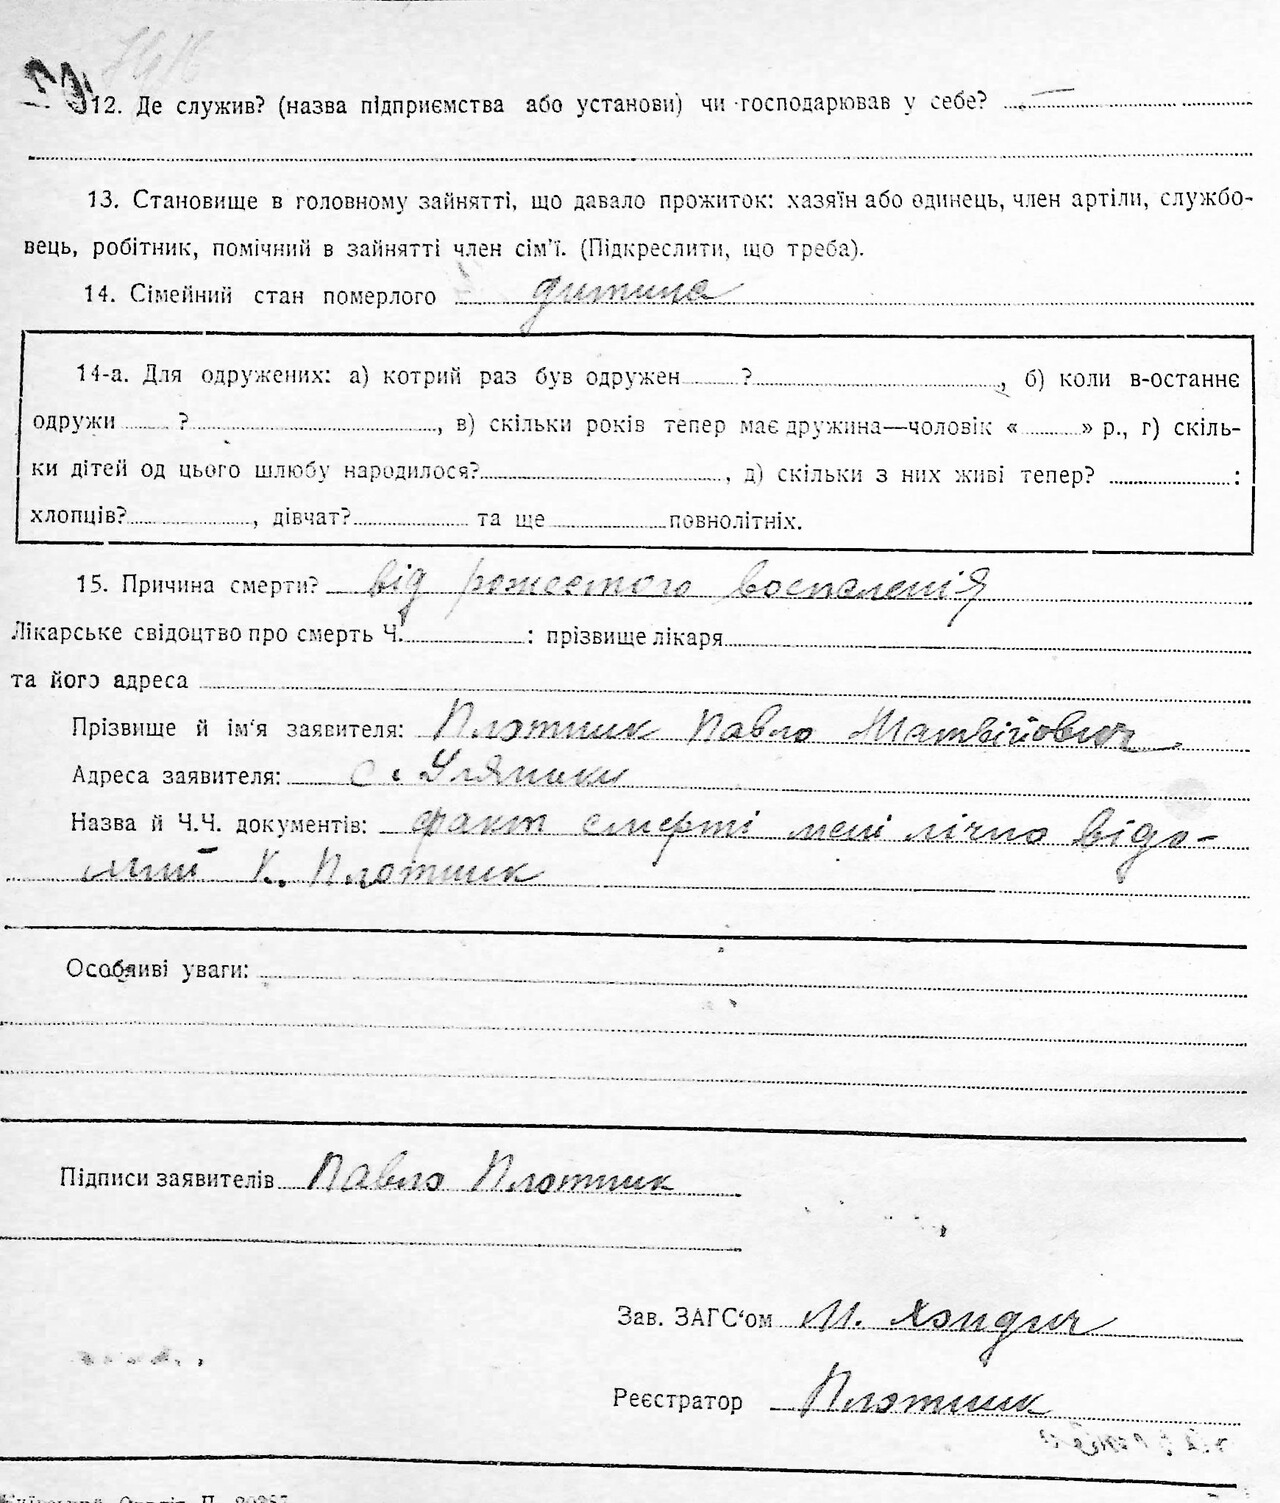 12. Де служив? (назва підприємства або установи) чи господарював у себе? —
13. Становище в головному зайнятті, що давало прожиток: хазяїн або одинець, член артіли, службо-
вець, робітник, помічний в зайнятті член сім'ї. (Підкреслити, що треба).
14. Сімейний стан померлого дитина
14-а. Для одружених: а) котрий раз був одружен ? , б) коли в-останнє
одружи ? , в) скільки років тепер має дружина—чоловік « » р., г) скіль-
ки дітей од цього шлюбу народилося? , д) скільки з них живі тепер? :
хлопців? , дівчат? та ще повнолітніх.
15. Причина смерти? від рожестого воспаленія
Лікарське свідоцтво про смерть Ч. : прізвище лікаря
та його адреса
Прізвище й ім'я заявителя: Плотник Павло Матвійович
Адреса заявителя: с. Уляники
Назва й Ч.Ч. документів: факт смерті мені лічно відо-
мий К. Плотник
Особливі уваги:
Підписи заявителів Павло Плотник
Зав. ЗАГС'ом М.
Реєстратор Плотник